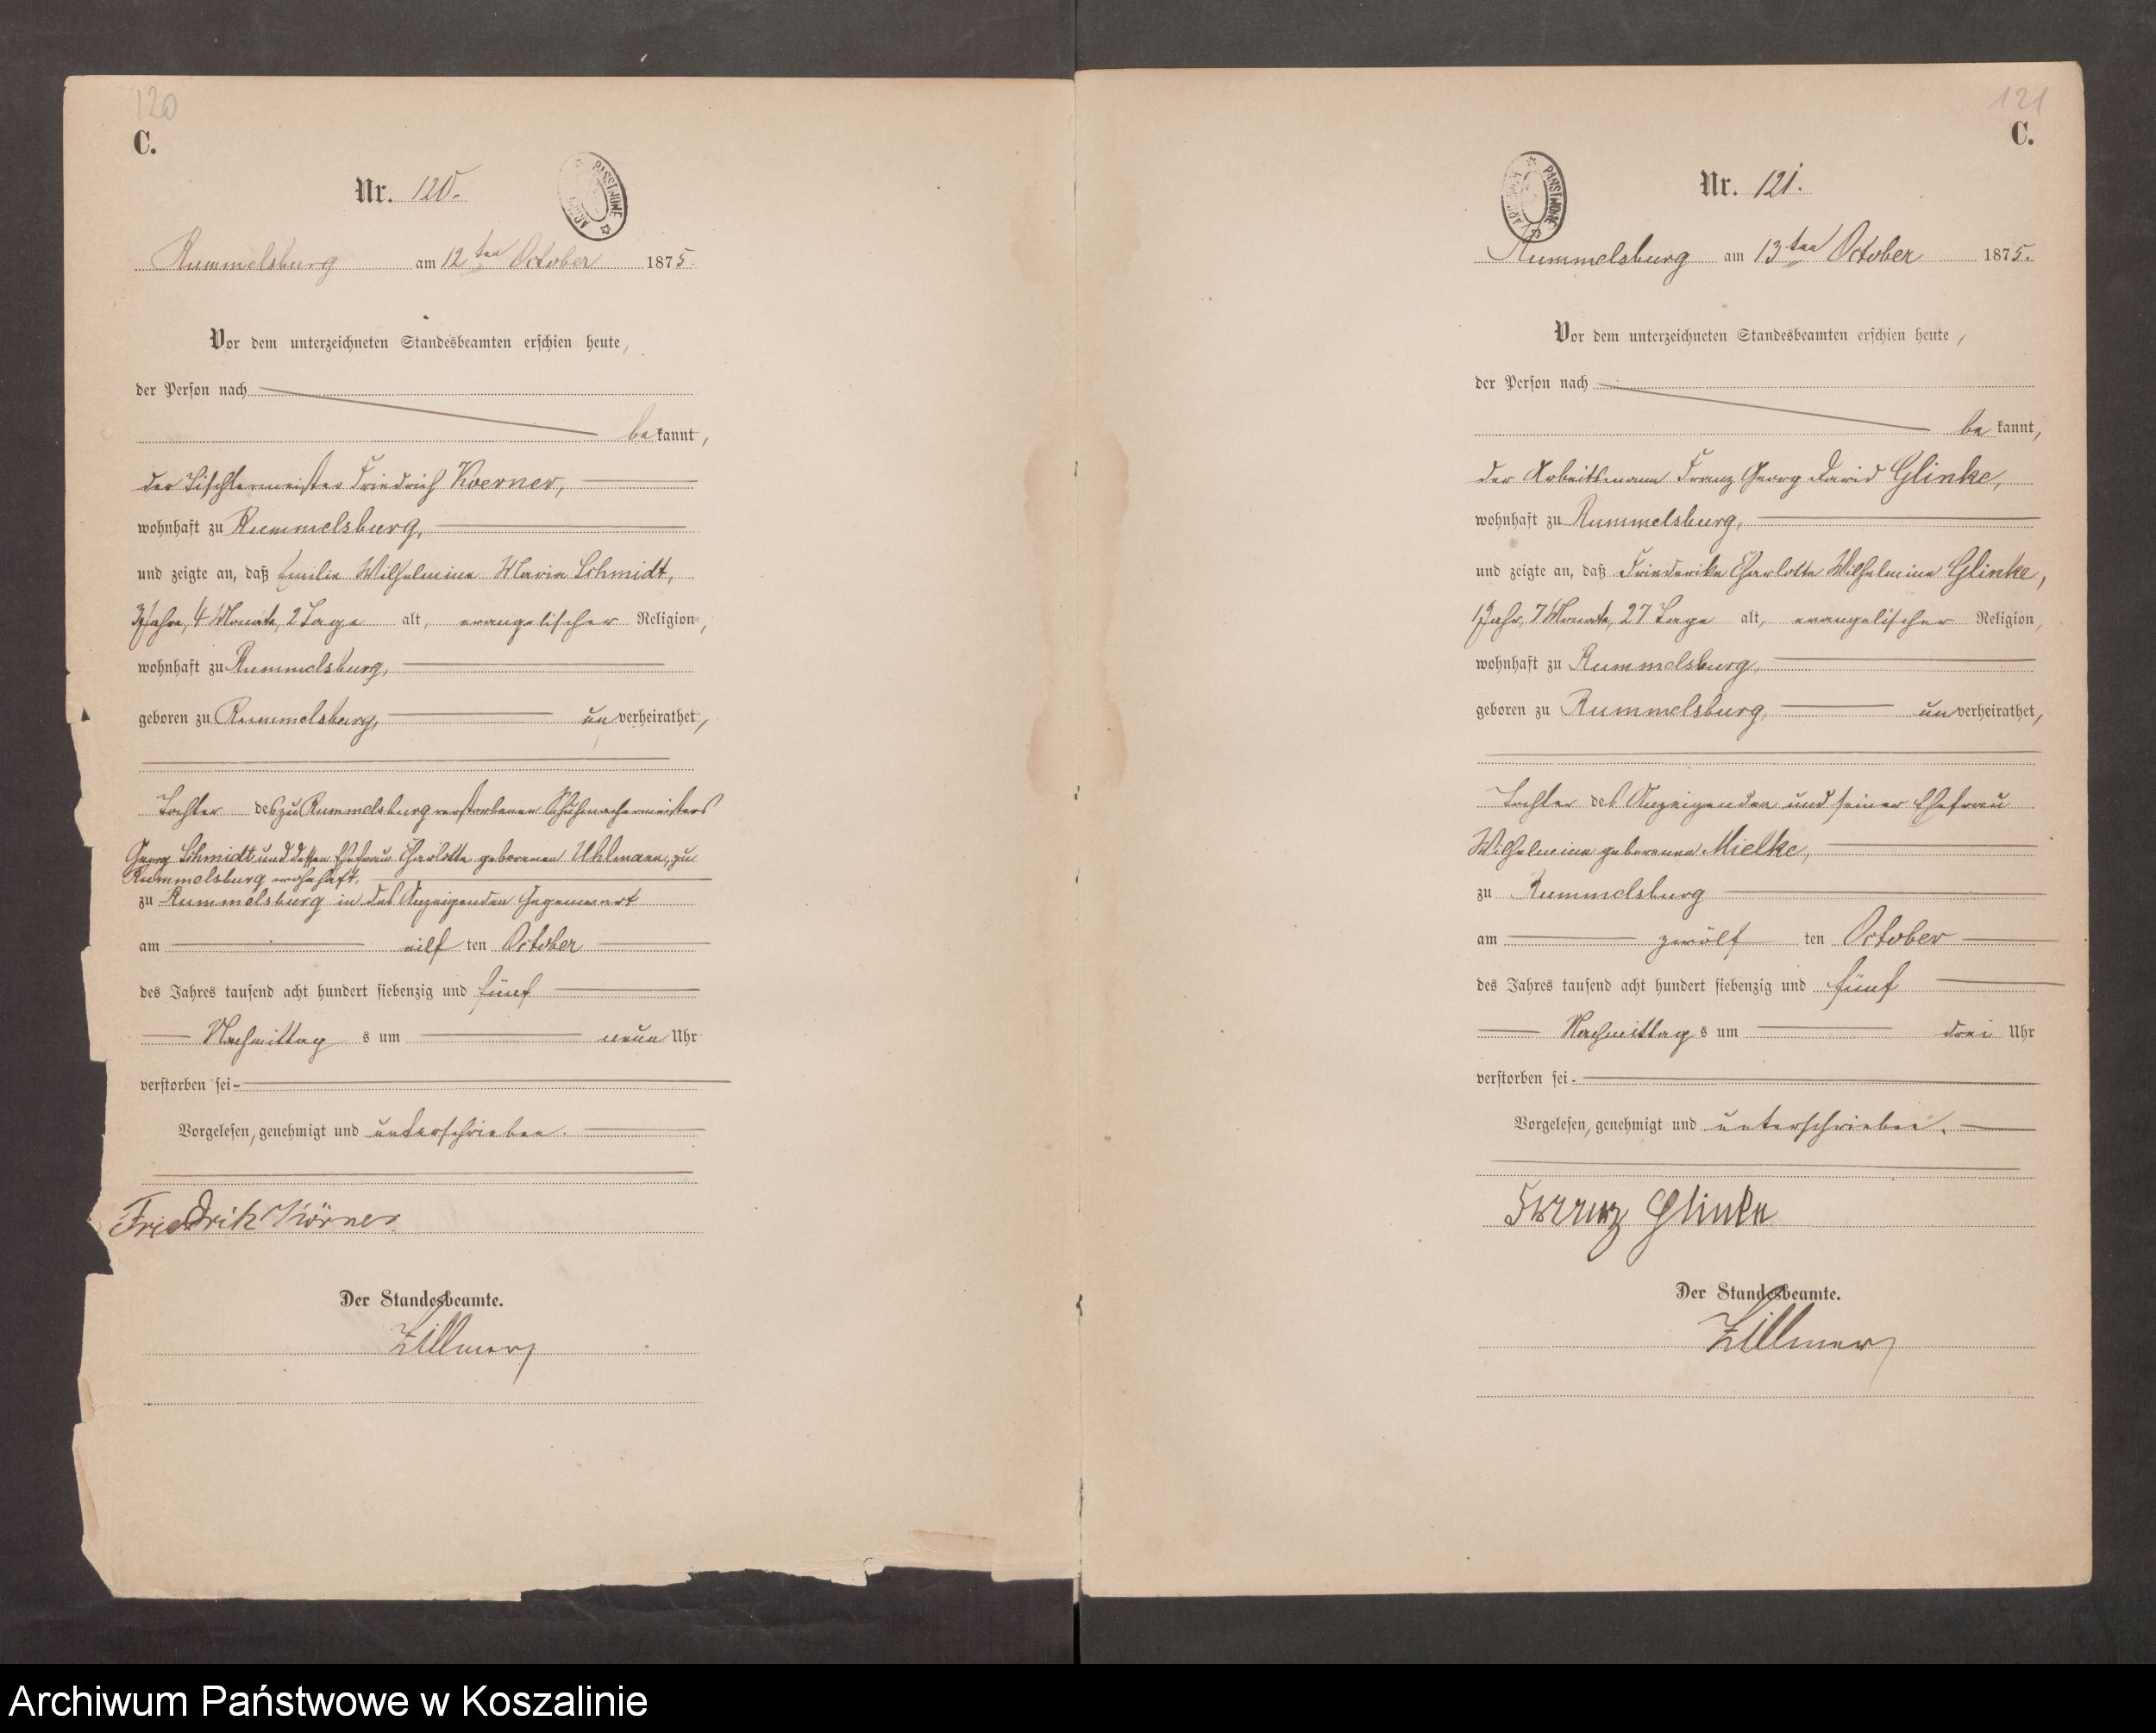 120
C.
Nr. 120.
PAŃSTWOWE
Rummelsburg am 12ten October 1875.
Vor dem unterzeichneten Standesbeamten erschien heute,
der Person nach
bekannt,
der Tischlermeister Friedrich Koerner,
wohnhaft zu Rummelsburg,
und zeigte an, daß Emilie Wilhelmine Marie Schmidt,
3 Jahre, 4 Monate, 2 Tage alt, evangelischer Religion,
wohnhaft zu Rummelsburg,
geboren zu Rummelsburg, unverheirathet,
Tochter des zu Rummelsburg verstorbenen Schuhmachermeisters
Georg Schmidt und dessen Ehefrau Charlotte geborenen Uhlmann, zu
Rummelsburg wohnhaft,
zu Rummelsburg in des Anzeigenden Gegenwart
am eilf ten October
des Jahres tausend acht hundert siebenzig und fünf
Nachmittag s um neun Uhr
verstorben sei
Vorgelesen, genehmigt und unterschrieben.
Friedrik Körner
Der Standesbeamte.
Zillmer
121
C.
Nr. 121.
PAŃSTWOWE
Rummelsburg am 13ten October 1875.
Vor dem unterzeichneten Standesbeamten erschien heute,
der Person nach
be kannt,
der Arbeitsmann Franz Georg David Glinke,
wohnhaft zu Rummelsburg,
und zeigte an, daß Friederike Charlotte Wilhelmine Glinke,
1 Jahr, 7 Monate, 27 Tage alt, evangelischer Religion,
wohnhaft zu Rummelsburg,
geboren zu Rummelsburg, unverheirathet,
Tochter des Anzeigenden und seiner Ehefrau
Wilhelmine geborenen Mielke,
zu Rummelsburg
am zwölf ten October
des Jahres tausend acht hundert siebenzig und fünf
Nachmittag s um drei Uhr
verstorben sei.
Vorgelesen, genehmigt und unterschrieben.
Franz Glinke
Der Standesbeamte.
Zillmer
Archiwum Państwowe w Koszalinie